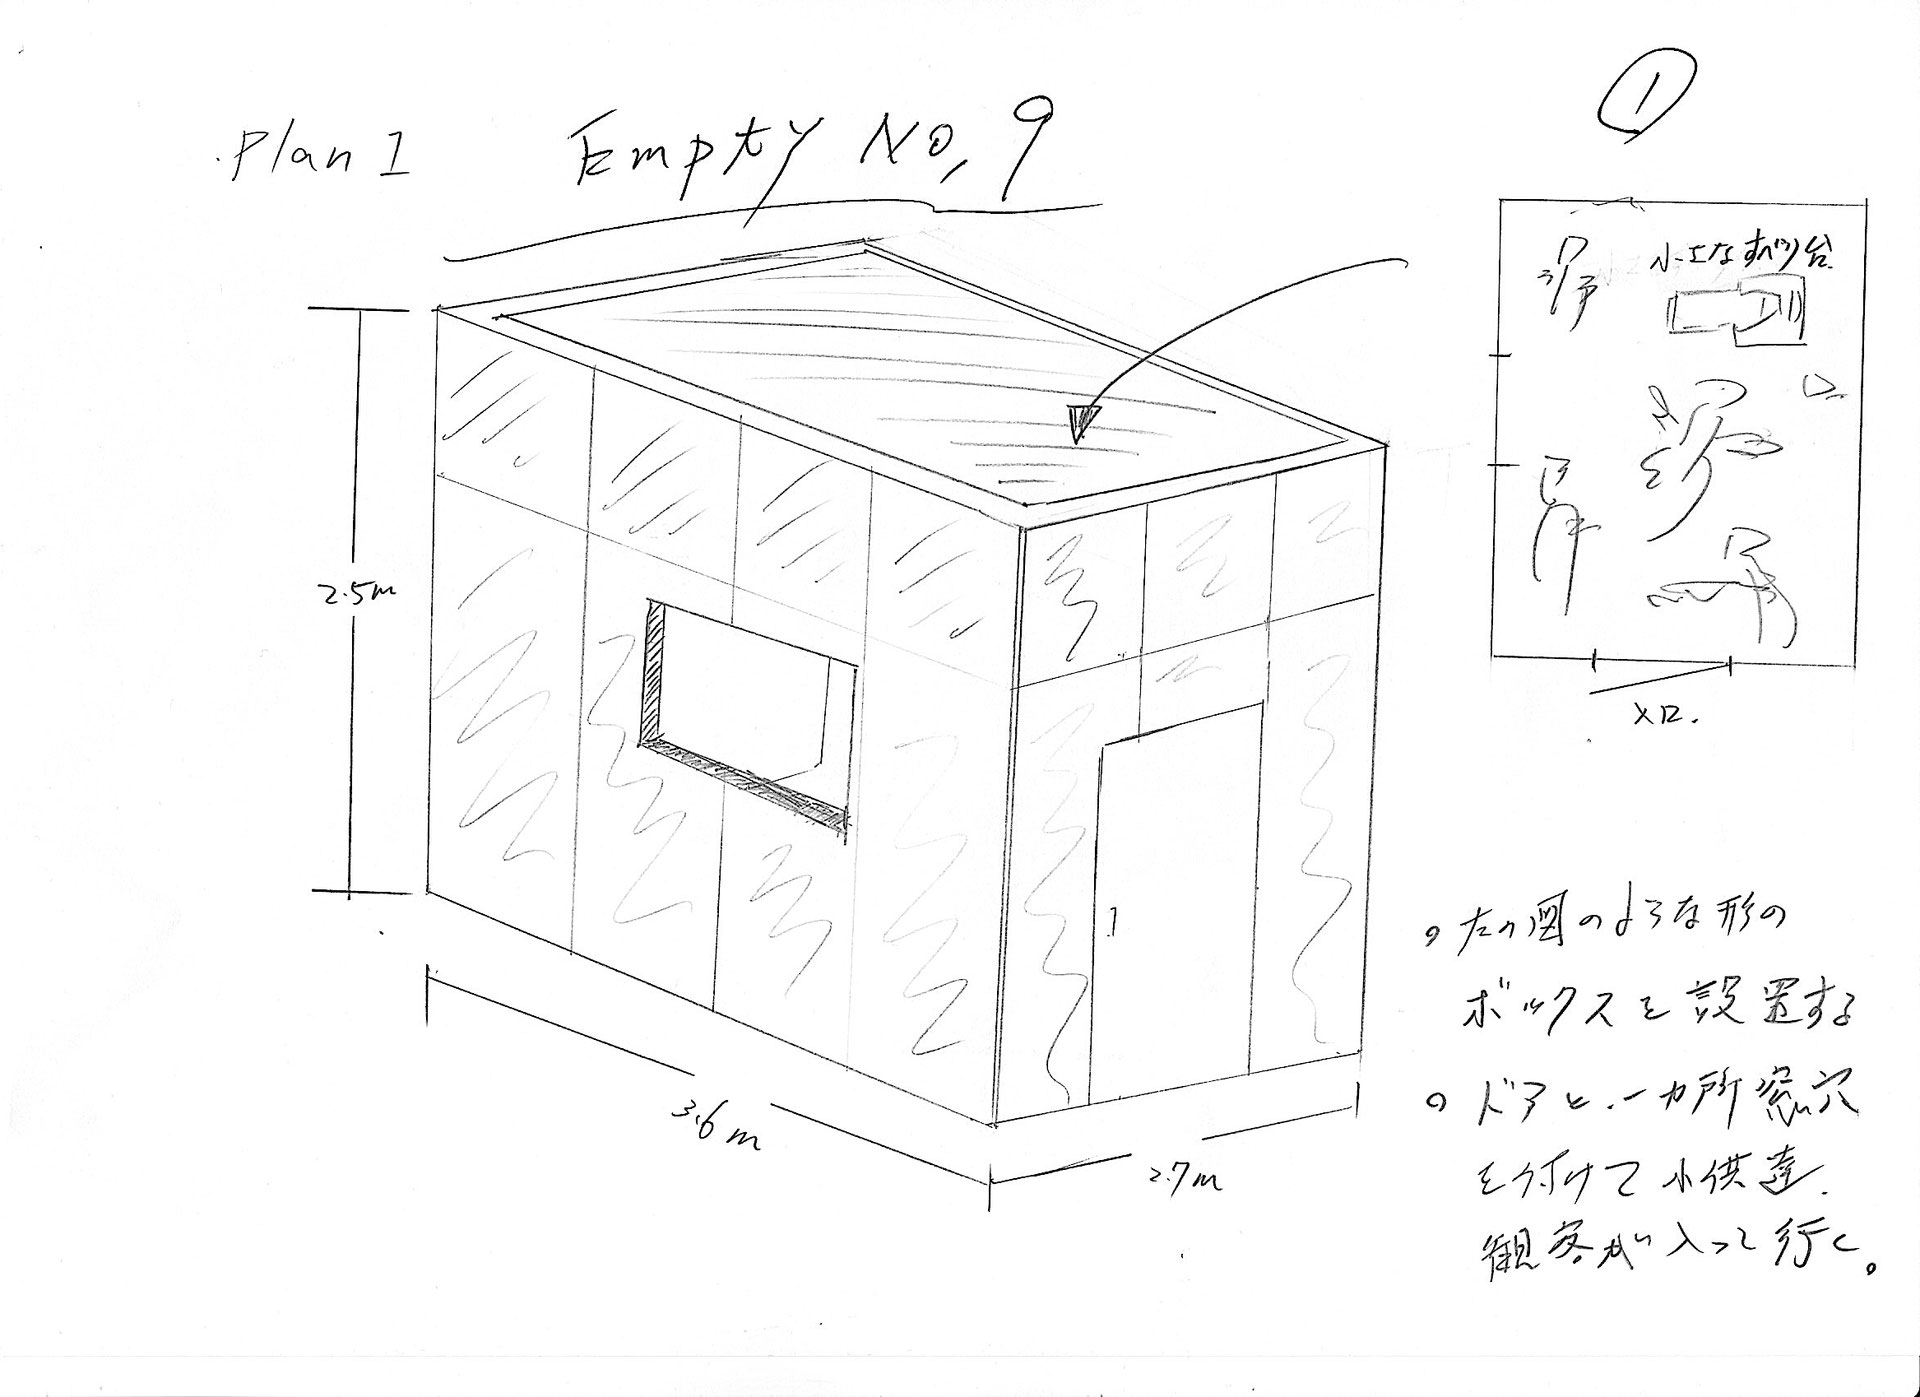 ①
Plan 1 Empty No, 9
小さなすべり台
入口.
2.5m
3.6m
2.7m
。左の図のような形の
ボックスを設置する
。ドアと.一カ所窓穴
を付けて小供達.
観客が入って行く。